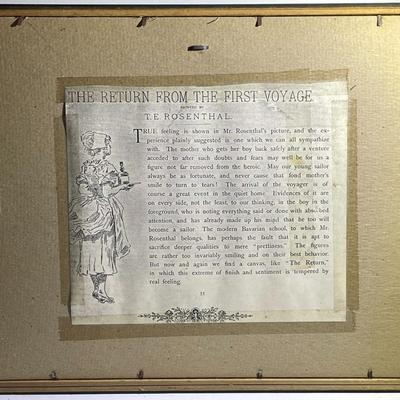 THE RETURN FROM THE FIRST VOYAGE.
PAINTED BY
T. E. ROSENTHAL.
TRUE feeling is shown in Mr. Rosenthal's picture, and the ex-
perience plainly suggested is one which we can all sympathize
with. The mother who gets her boy back safely after a venture
acceded to after such doubts and fears may well be for us a
figure not far removed from the heroic. May our young sailor
always be as fortunate, and never cause that fond mother's
smile to turn to tears! The arrival of the voyager is of
course a great event in the quiet home. Evidences of it are
on every side, not the least, to our thinking, in the boy in the
foreground, who is noting everything said or done with absorbed
attention, and has already made up his mind that he too will
become a sailor. The modern Bavarian school, to which Mr.
Rosenthal belongs, has perhaps the fault that it is apt to
sacrifice deeper qualities to mere "prettiness." The figures
are rather too invariably smiling and on their best behavior.
But now and again we find a canvas, like "The Return,"
in which this extreme of finish and sentiment is tempered by
real feeling.